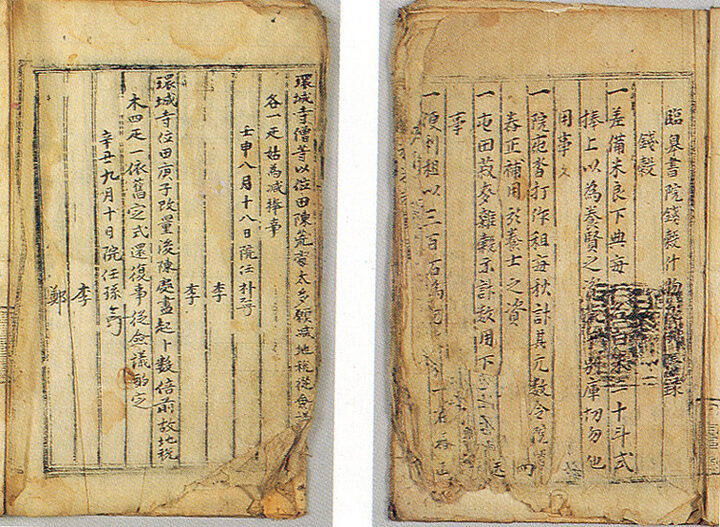 臨皐書院錢穀什物 錄
錢穀
一差備未良下典每 十斗式
捧上以為養賢之 庫切勿他
用事
一院屯畓打作租每秋計其元數令院
補用於養士之資
一屯田菽麥雜穀示計數用下
事
一便利租以三百石為
環城寺僧等以位田陳荒處太多願減地稅從僉議
各一疋姑為減捧事
壬申八月十八日院任朴
李
李
環城寺位田庚子改量後陳處盡起卜數倍前故地稅
木四疋一依舊定式還復事從僉議酌定
辛丑九月十日院任孫
李
鄭